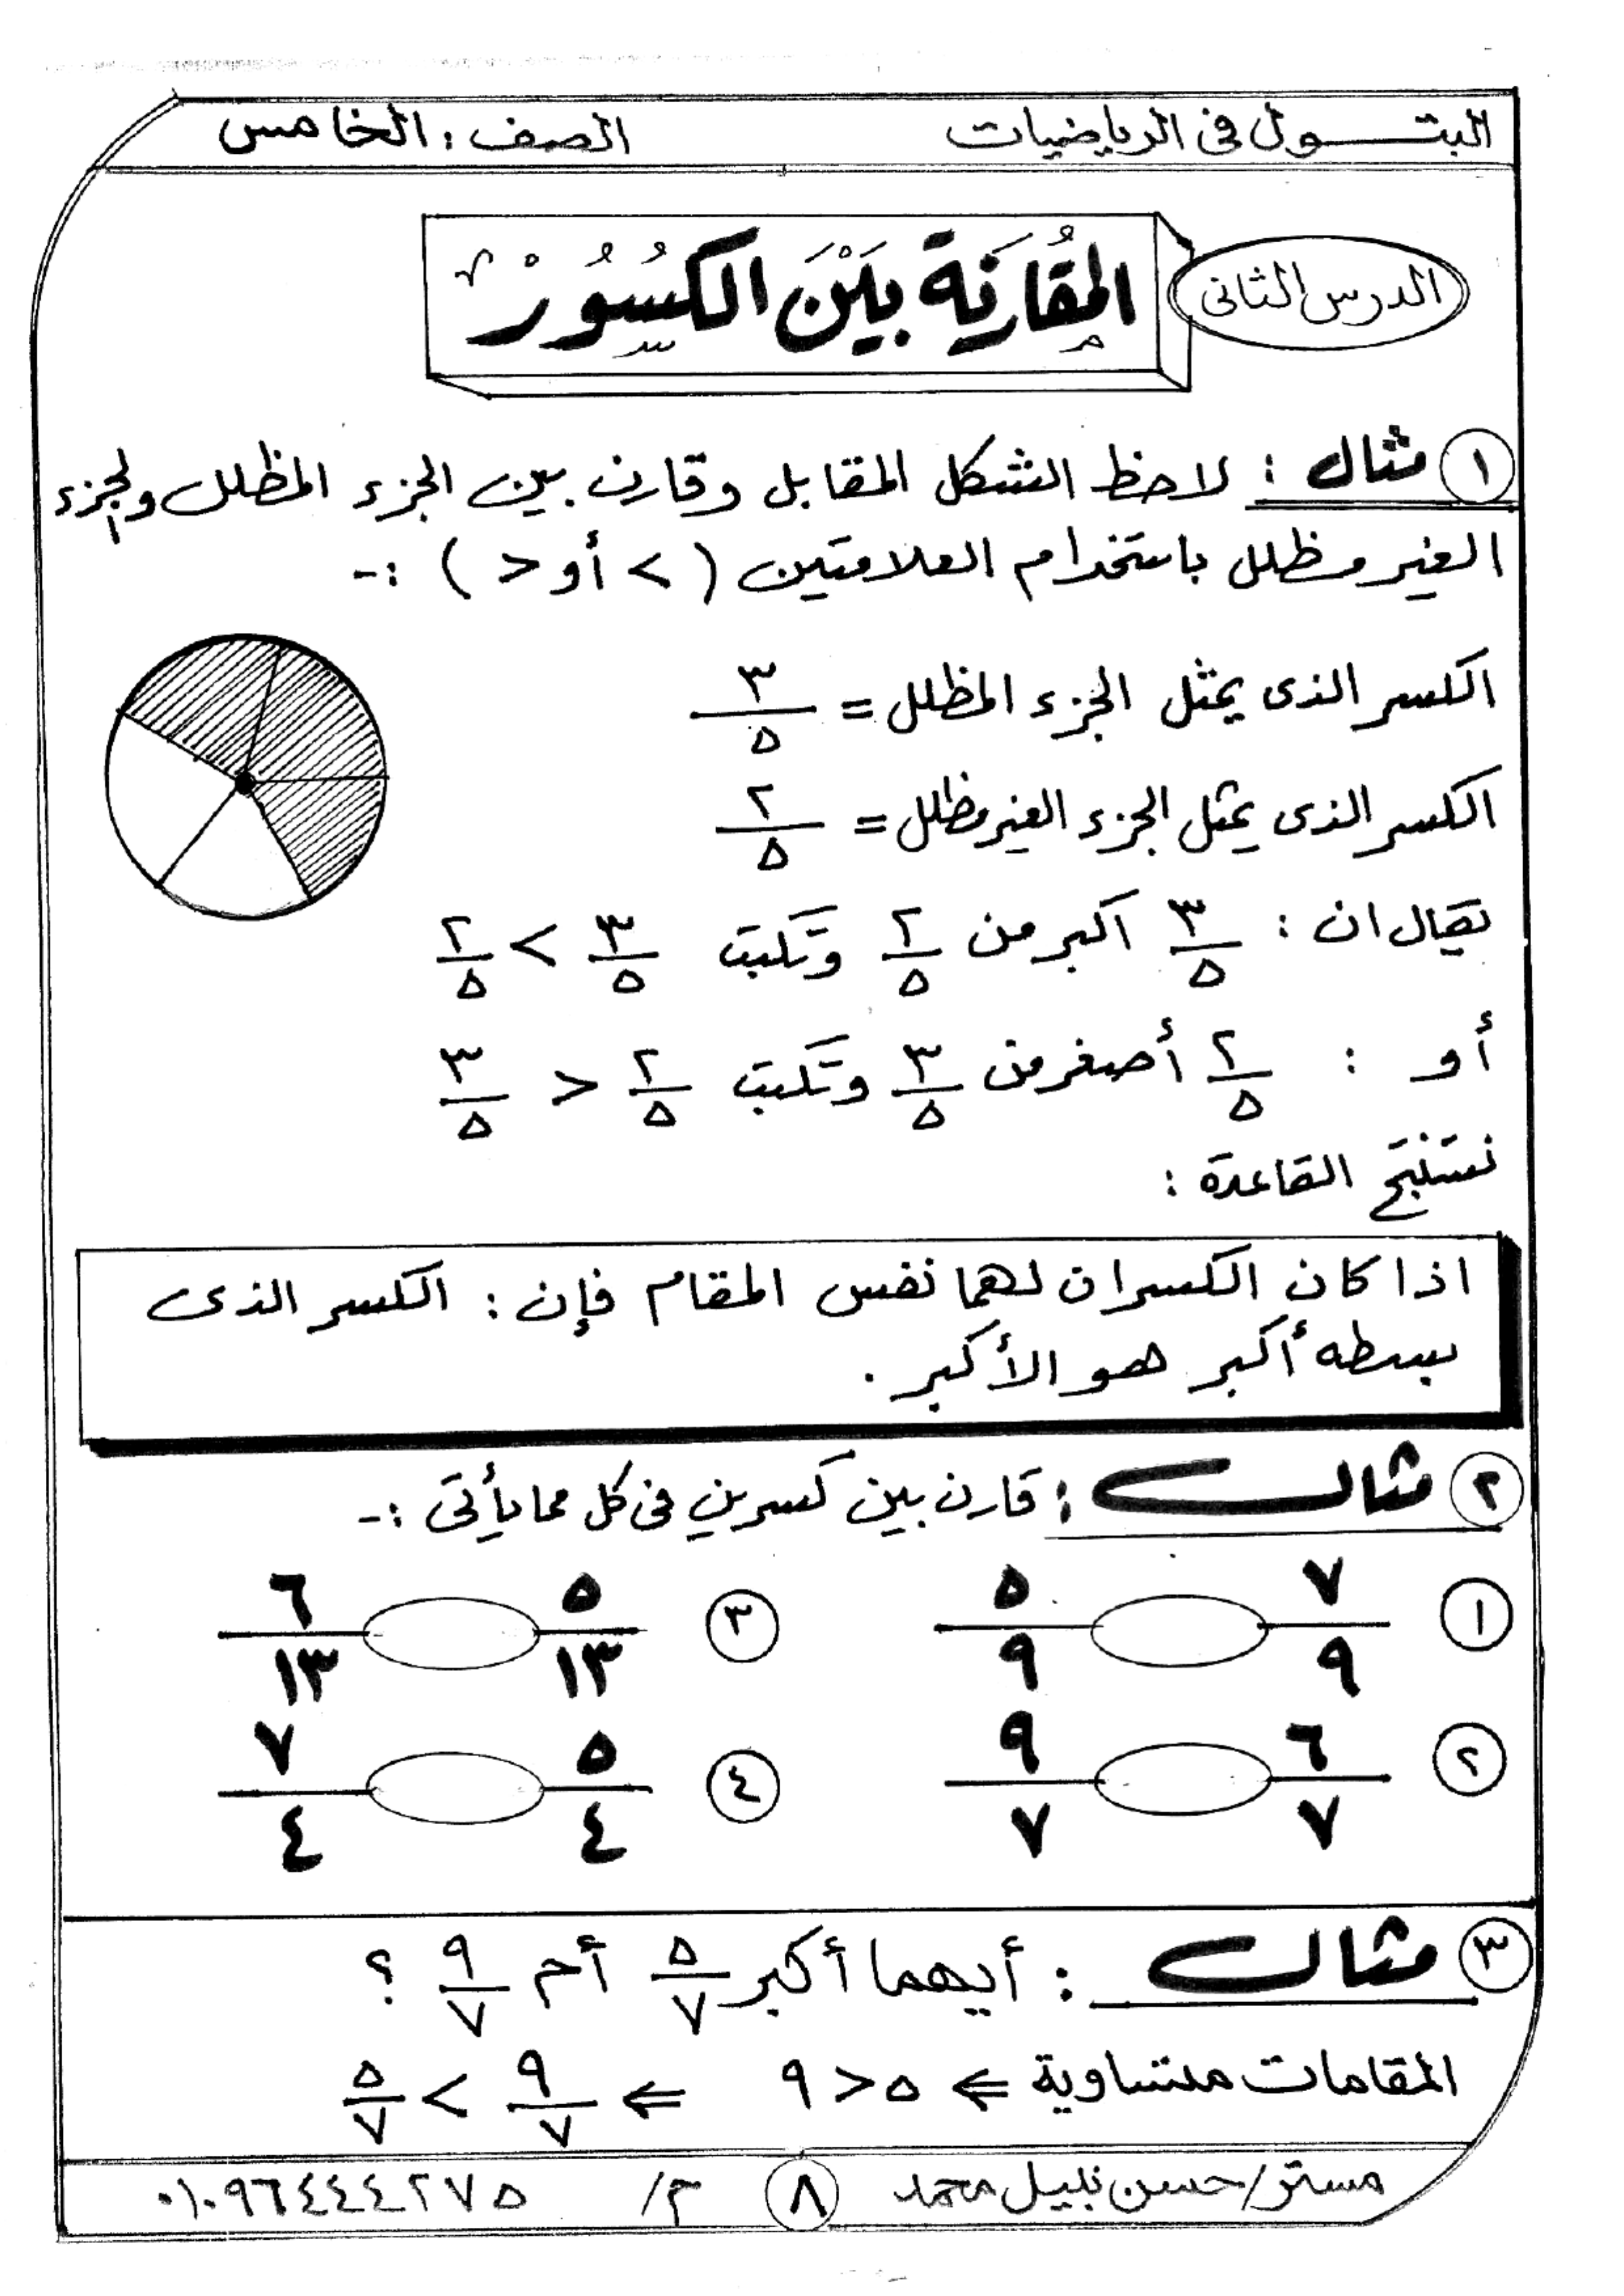 البتـــول فى الرياضيات الصف : الخامس
الدرس الثانى
المُقَارَنَة بَيْنَ الكُسُورْ
١ مثال : لاحظ الشكل المقابل وقارن بين الجزء المظلل والجزء
الغير مظلل باستخدام العلامتين ( > أو < ) :-
الكسر الذى يمثل الجزء المظلل = ٣/٥
الكسر الذى يمثل الجزء الغير مظلل = ٢/٥
يقال ان : ٣/٥ اكبر من ٢/٥ وتكتب ٣/٥ > ٢/٥
أو : ٢/٥ أصغر من ٣/٥ وتكتب ٢/٥ < ٣/٥
نستنتج القاعدة :
اذا كان الكسران لهما نفس المقام فإن : الكسر الذى
بسطه أكبر هو الأكبر .
٢ مثال : قارن بين كسرين فى كل مما يأتى :-
١ ٧/٩ ٥/٩ ٣ ٥/١٣ ٦/١٣
٢ ٦/٧ ٩/٧ ٤ ٥/٤ ٧/٤
٣ مثال : أيهما أكبر ٥/٧ أم ٩/٧ ؟
المقامات متساوية ⇐ ٥ < ٩ ⇐ ٩/٧ > ٥/٧
مستر/حسن نبيل محمد ٨ م/ ٠١٠٩٦٤٤٤٢٧٥